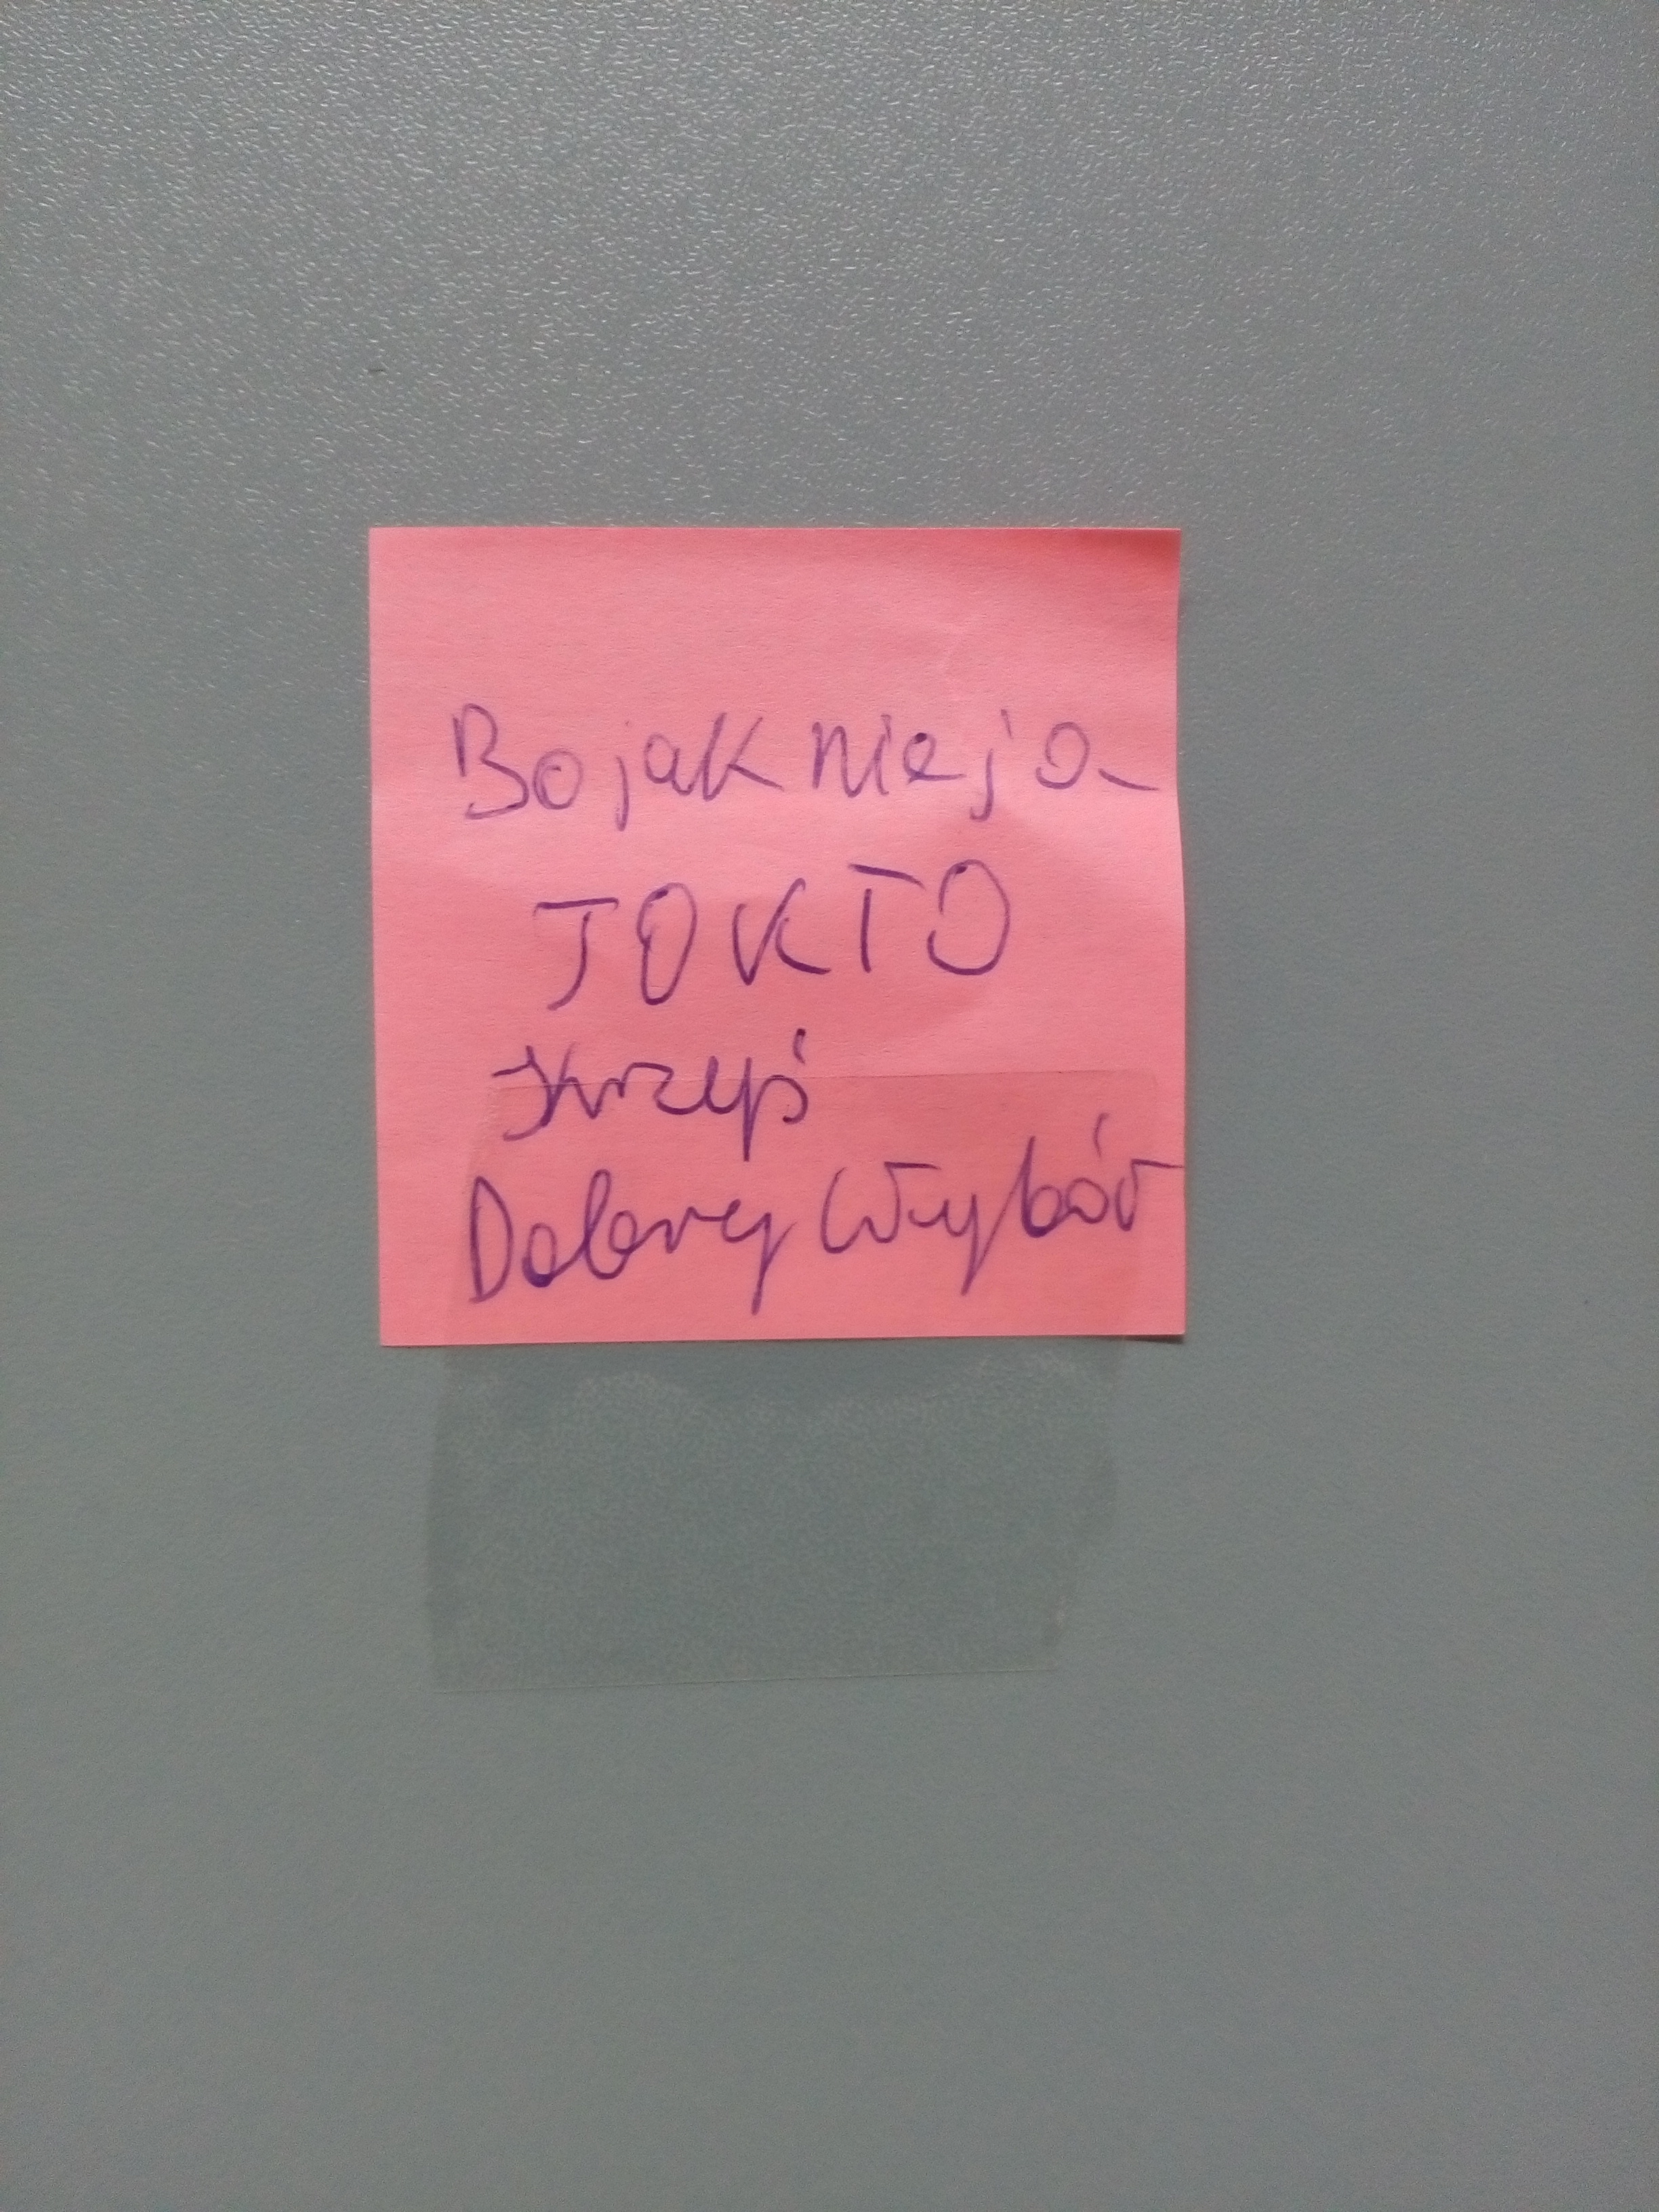 Bo jak nie ja
TO KTO
Krzyś
Dobry Wybór